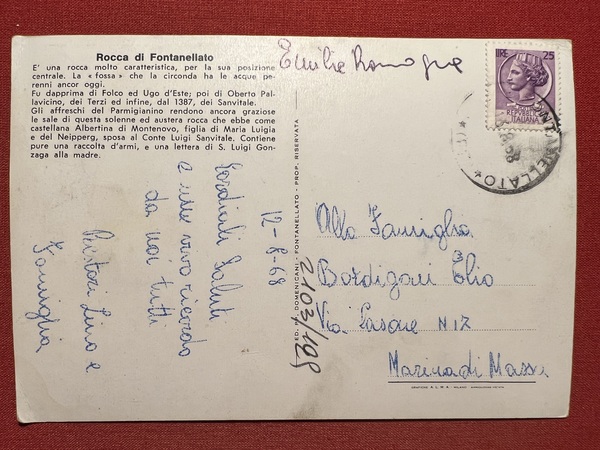 Rocca di Fontanellato
E' una rocca molto caratteristica, per la sua posizione
centrale. La « fossa » che la circonda ha le acque pe-
renni ancor oggi.
Fu dapprima di Folco ed Ugo d'Este; poi di Oberto Pal-
lavicino, dei Terzi ed infine, dal 1387, dei Sanvitale.
Gli affreschi del Parmigianino rendono ancora graziose
le sale di questa solenne ed austera rocca che ebbe come
castellana Albertina di Montenovo, figlia di Maria Luigia
e del Neipperg, sposa al Conte Luigi Sanvitale. Contiene
pure una raccolta d'armi, e una lettera di S. Luigi Gon-
zaga alla madre.
Emilia Romagna
LIRE 25
REPUBBLICA
ITALIANA
FONTANELLATO
12-8-68
Cordiali Saluti
e un vivo ricordo
da noi tutti
Lino e
Famiglia
ED. DOMENICANI - FONTANELLATO - PROP. RISERVATA
2103/195
Alla Famiglia
Bordigoni Elio
Via N 12
Marina di Massa